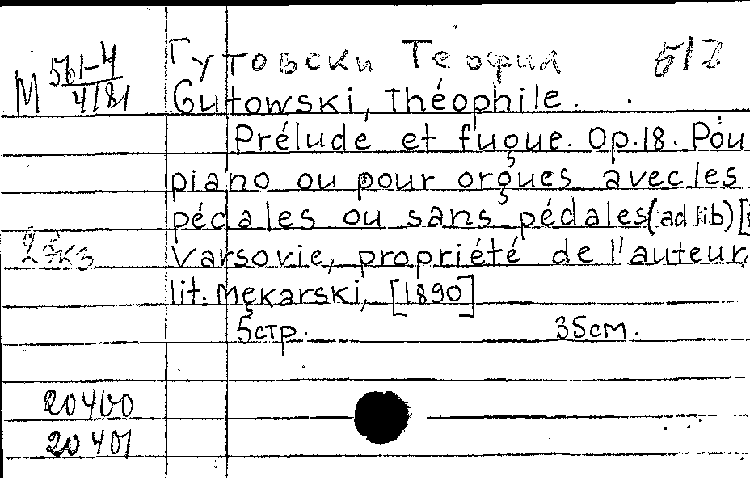 Гутовски Теофил 512
М 561-4
4181
Gutowski, Théophile.
Prélude et fugue. Op.18. Pou
piano ou pour orgues avec les
pédales ou sans pédales (ad lib) [
2 экз Varsovie, propriété de l'auteur,
lit. Mękarski, [1890]
5 стр. 35 cm.
20400
20401